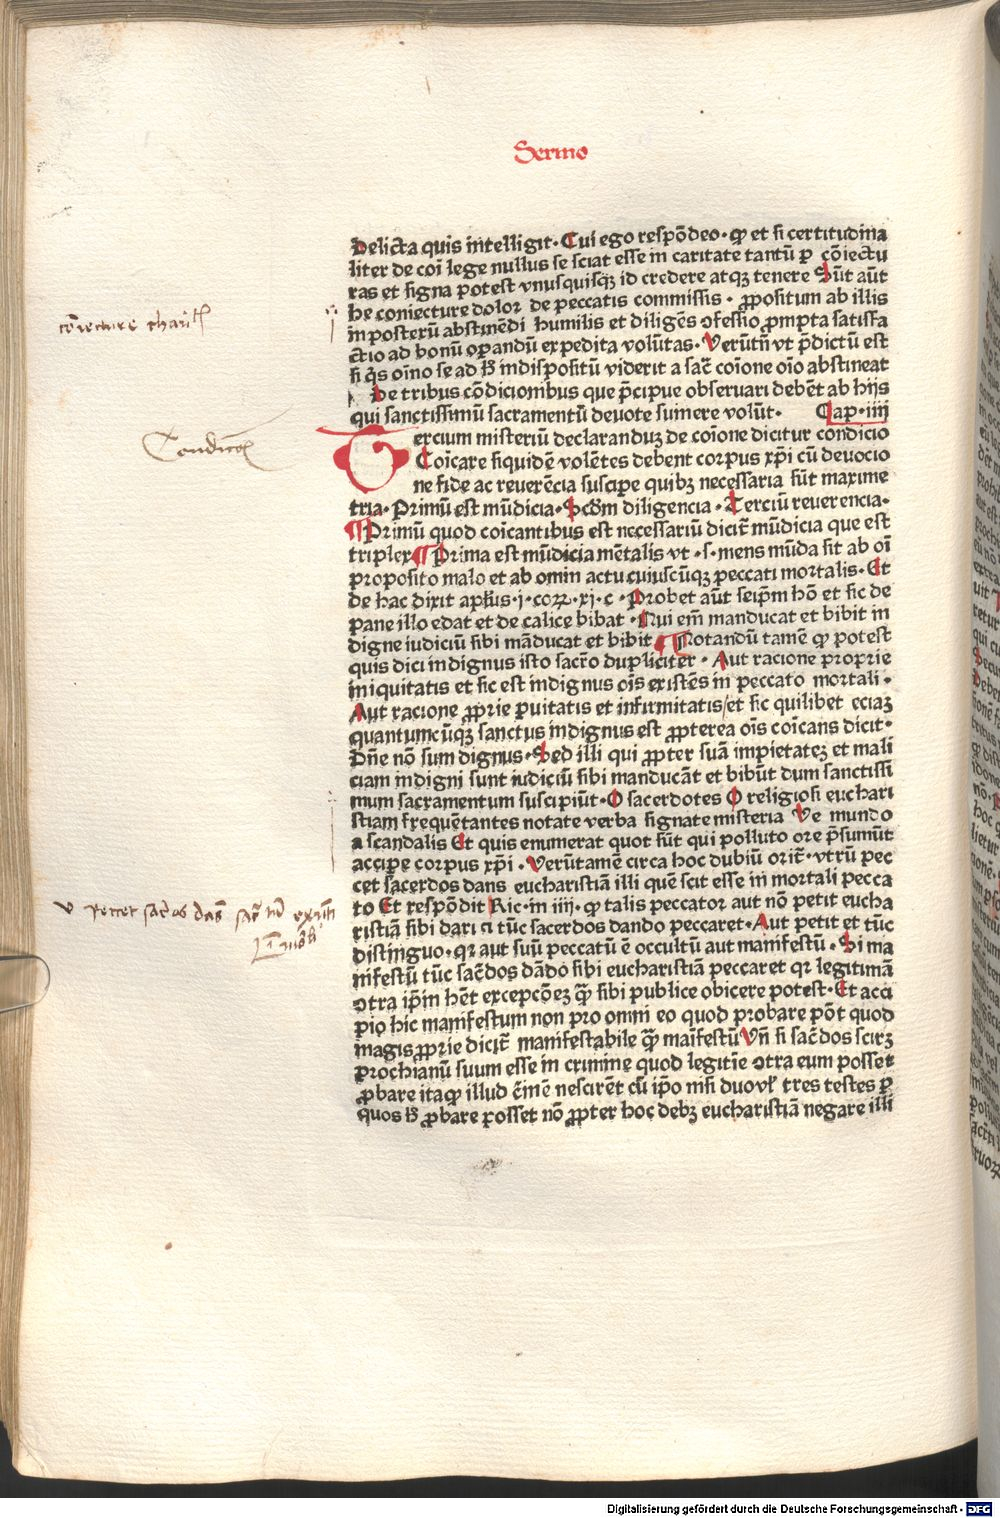 Sermo
Delicta quis intelligit. Cui ego respōdeo. ꝙ et si certitudina
liter de coi lege nullus se sciat esse in caritate tantū ꝑ cōiectu
ras et signa potest vnusquisqꝫ id credere atqꝫ tenere Sūt aūt
he coniecture dolor de peccatis commissis. ꝓpositum ab illis
in posterū abstinēdi humilis et diligēs ↄfessio ꝓmpta satisfa
ctio ad bonū oꝑandū expedita volūtas. Verūtñ vt p̄dictū est
si q̇s oīno se ad ħ indispositū viderit a sac̄ coīone oīo abstineat
De tribus cōdicionibus que p̄cipue obseruari debēt ab hijs
qui sanctissimū sacramentū deuote sumere volūt. Cap. iiii
Tercium misteriū declarandūꝫ de coīone dicitur condicio
Coīcare siquidē volētes debent corpus xp̄i cū deuocio
ne fide ac reuerēcia suscipe quibꝫ necessaria sūt maxime
tria. Primū est mūdicia. Scōm diligencia. Terciū reuerencia.
¶ Primū quod coīcantibus est necessariū dicit̄ mūdicia que est
triplex ¶ Prima est mūdicia mētalis vt .s. mens mūda sit ab oī
proposito malo et ab omin actu cuiuscūqꝫ peccati mortalis. Et
de hac dixit ap̄lus .i. corꝝ. xi. c. Probet aūt seip̄m hō et sic de
pane illo edat et de calice bibat. Qui em̄ manducat et bibit in
digne iudiciū sibi māducat et bibit ¶ Notandū tamē ꝙ potest
quis dici indignus isto sacr̄o dupliciter. Aut racione proprie
iniquitatis et sic est indignus oīs existēs in peccato mortali.
Aut racione ꝓprie puitatis et infirmitatis/et sic quilibet eciaꝫ
quantumcūqꝫ sanctus indignus est ꝓpterea oīs coīcans dicit.
Dn̄e nō sum dignus. Sed illi qui ꝓpter suā impietateꝫ et mali
ciam indigni sunt iudiciū sibi manducāt et bibūt dum sanctissi
mum sacramentum suscipiūt. O sacerdotes O religiosi euchari
stiam frequētantes notate verba signate misteria Ve mundo
a scandalis Et quis enumerat quot sūt qui polluto ore p̄sumūt
accipe corpus xp̄i. Verūtamē circa hoc dubiū orit̄. vtrū pec
cet sacerdos dans eucharistiā illi quē scit esse in mortali pecca
to Et respōdit Ric. in iiii. ꝙ talis peccator aut nō petit eucha
ristiā sibi dari ci tūc sacerdos dando peccaret. Aut petit et tūc
distinguo. qr aut suū peccatū ē occultū aut manifestū. Si ma
nifestū tūc sac̄dos dādo sibi eucharistiā peccaret qr legitimā
ↄtra ip̄m hēt excepcōeꝫ ꝙ̄ sibi publice obicere potest. Et acci
pio hic manifestum non pro omni eo quod probare pōt quod
magis ꝓprie dicit̄ manifestabile ꝙ̄ maīfestū Vn̄ si sac̄dos sciꝛꝫ
ꝓchianū suum esse in crimine quod legitīe ↄtra eum posset
ꝓbare itaꝙ illud c̄imē nescirēt cū ip̄o nisi duovl̓ tres testes ꝑ
quos ħ ꝓbare ꝓosset nō ꝓpter hoc debꝫ eucharistiā negare illi
Digitalisierung gefördert durch die Deutsche Forschungsgemeinschaft - DFG